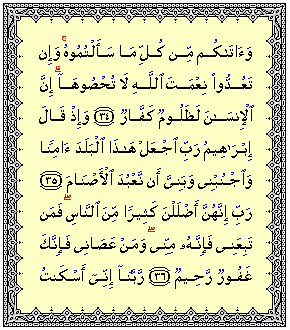 وَءَاتَىٰكُم مِّن كُلِّ مَا سَأَلْتُمُوهُ ۚ وَإِن
تَعُدُّوا۟ نِعْمَتَ ٱللَّهِ لَا تُحْصُوهَآ ۗ إِنَّ
ٱلْإِنسَـٰنَ لَظَلُومٌ كَفَّارٌ ﴿٣٤﴾ وَإِذْ قَالَ
إِبْرَٰهِيمُ رَبِّ ٱجْعَلْ هَـٰذَا ٱلْبَلَدَ ءَامِنًا
وَٱجْنُبْنِى وَبَنِىَّ أَن نَّعْبُدَ ٱلْأَصْنَامَ ﴿٣٥﴾
رَبِّ إِنَّهُنَّ أَضْلَلْنَ كَثِيرًا مِّنَ ٱلنَّاسِ ۖ فَمَن
تَبِعَنِى فَإِنَّهُۥ مِنِّى ۖ وَمَنْ عَصَانِى فَإِنَّكَ
غَفُورٌ رَّحِيمٌ ﴿٣٦﴾ رَّبَّنَآ إِنِّىٓ أَسْكَنتُ